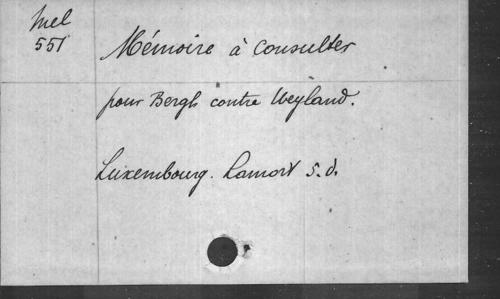 Mel
551
Mémoire à consulter
pour Bergh contre Weyland.
Luxembourg. Lamort s.d.